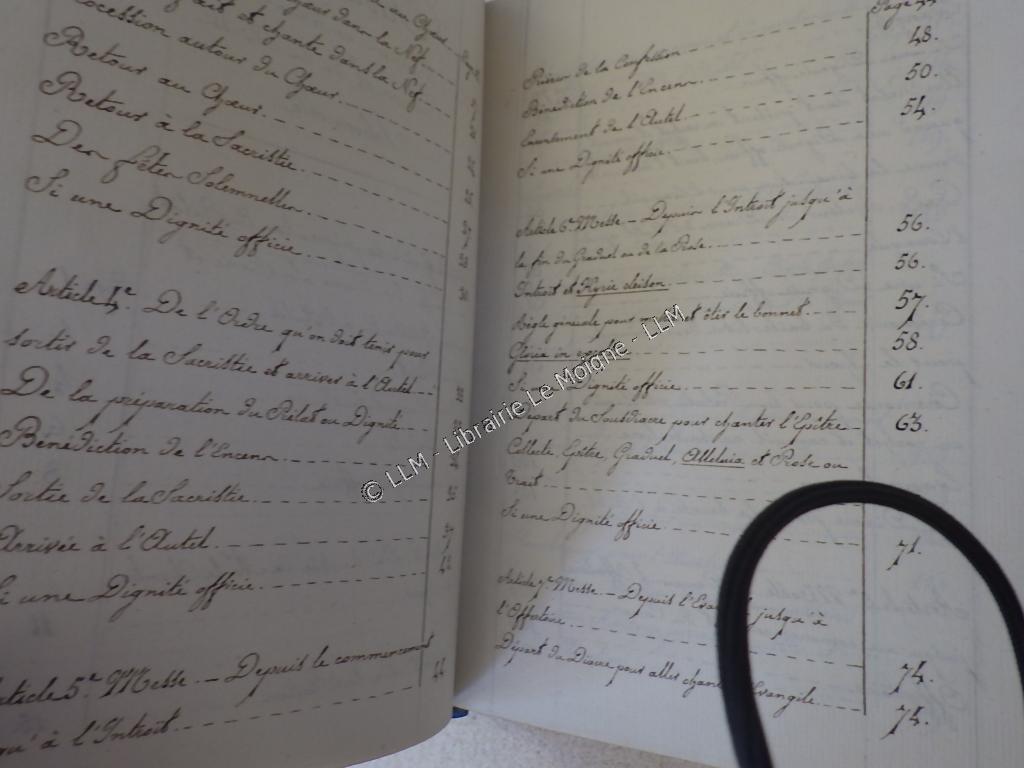 au Chœur
dans la Nef
et chante dans la Nef
Procession autour du Chœur
Retour au Chœur
Retour à la Sacristie
Des fêtes Solemnelles
Si une Dignité officie
Article 4.e De l'Ordre qu'on doit tenir pour
sortir de la Sacristie et arriver à l'Autel
De la préparation du Prélat ou Dignité
Bénédiction de l'Encens
Sortie de la Sacristie
Arrivée à l'Autel
Si une Dignité officie
Article 5.e Messe. Depuis le commencement
à l'Introït 44
Page
de la Confession 48.
Bénédiction de l'Encens 50.
Encensement de l'Autel 54.
Si une Dignité officie
Article 6.e Messe - Depuis l'Introït jusqu'à
la fin du Graduel ou de la Prose 56.
Introït et Kyrie eleison 56.
Règle générale pour mettre et ôter le bonnet 57.
Gloria in 58.
Si une Dignité officie 61.
Départ du Sousdiacre pour chanter l'Epître 63.
Collecte, Epître, Graduel, Alleluia et Prose ou
Trait
Si une Dignité officie 71.
Article 7.e Messe - Depuis l'Evangile jusqu'à
l'Offertoire 74.
Départ du Diacre pour aller chanter l'Evangile 75.
© LLM - Librairie Le Moigne - LLM